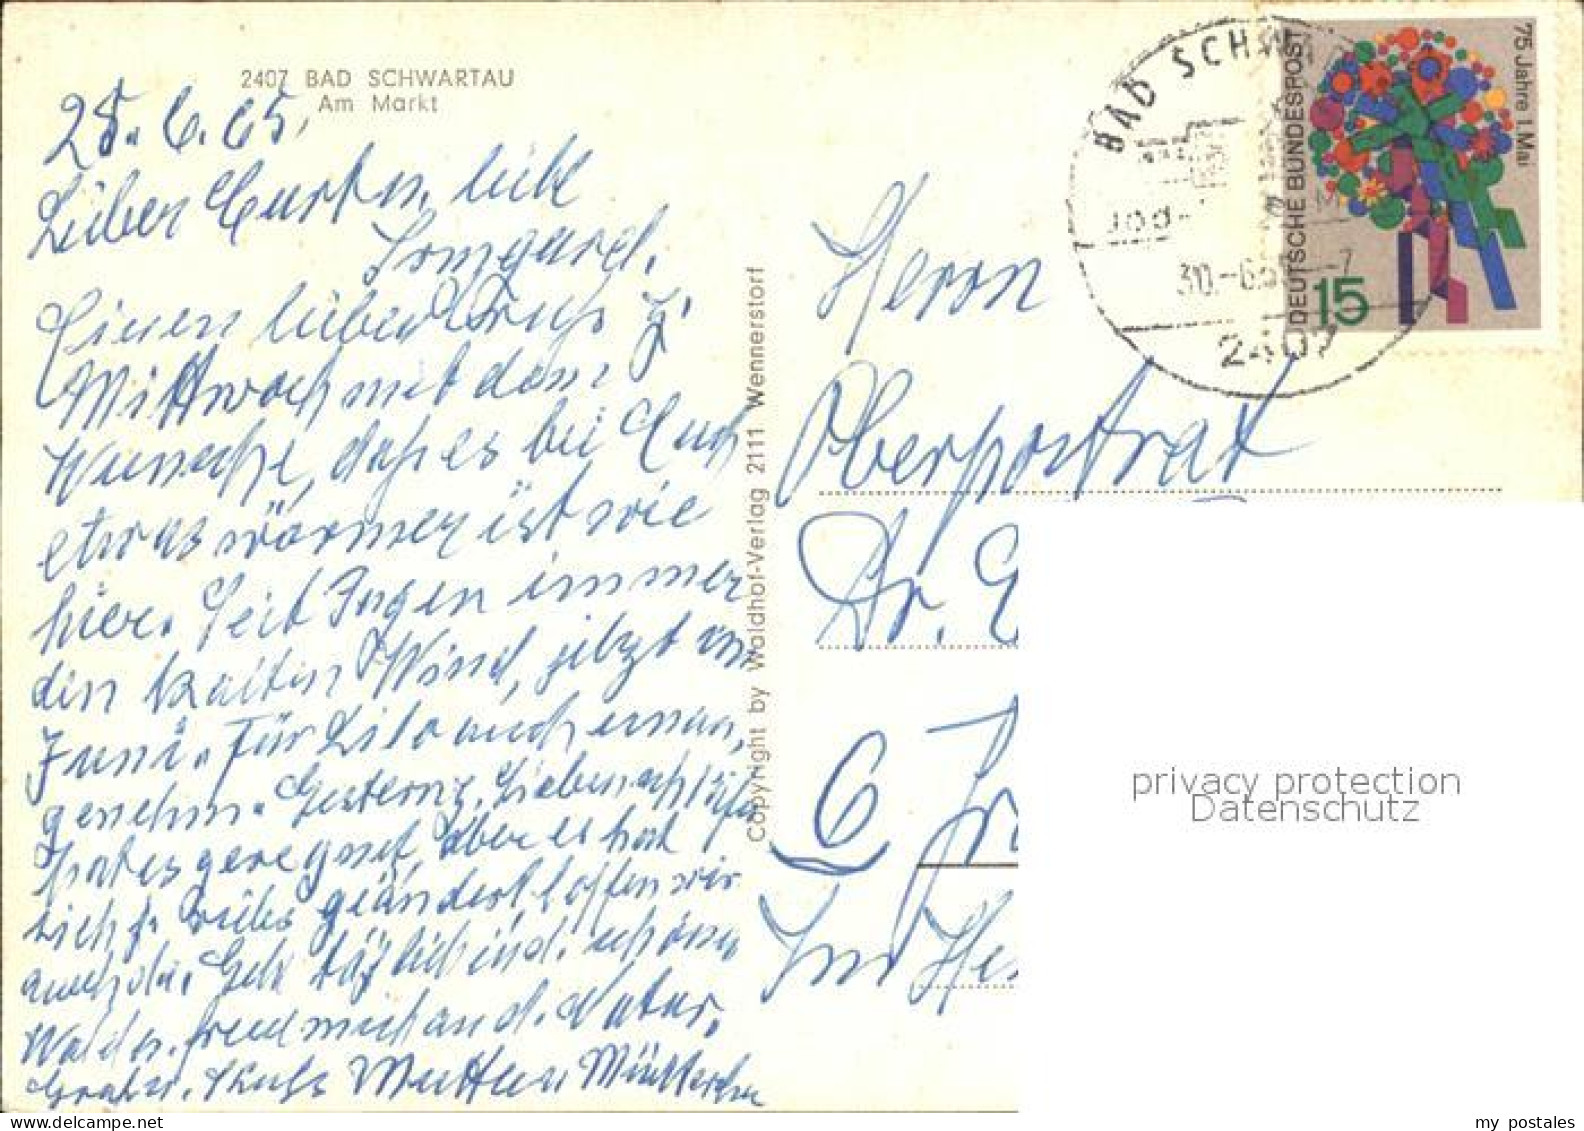 2407 BAD SCHWARTAU
Am Markt
28. 6. 65.
Lieber Curt u. liebe
Irmgard.
Einen lieben Gruß z.
Mittwoch mit dem
Wunsche, daß es bei Euch
etwas wärmer ist wie
hier. Seit Tagen immer
den kalten Wind, jetzt im
Juni. Für Lilo auch unan,
genehm. Gestern z. Siebenschläfer
hat es geregnet, aber es hat
sich ja vieles geändert, hoffen wir
auch da. Geh täglich i. d. schönen
Wald u. freue mich an d. Natur.
Gruß u. Kuß Mutter Mütterchen
Copyright by Waldhof-Verlag 2111 Wennerstorf
BAD SCHW
Jod-
30.-6.65-7
2407
DEUTSCHE BUNDESPOST
75 Jahre 1. Mai
15
Herrn
Oberpostrat
Dr.
6
privacy protection
Datenschutz
my postales